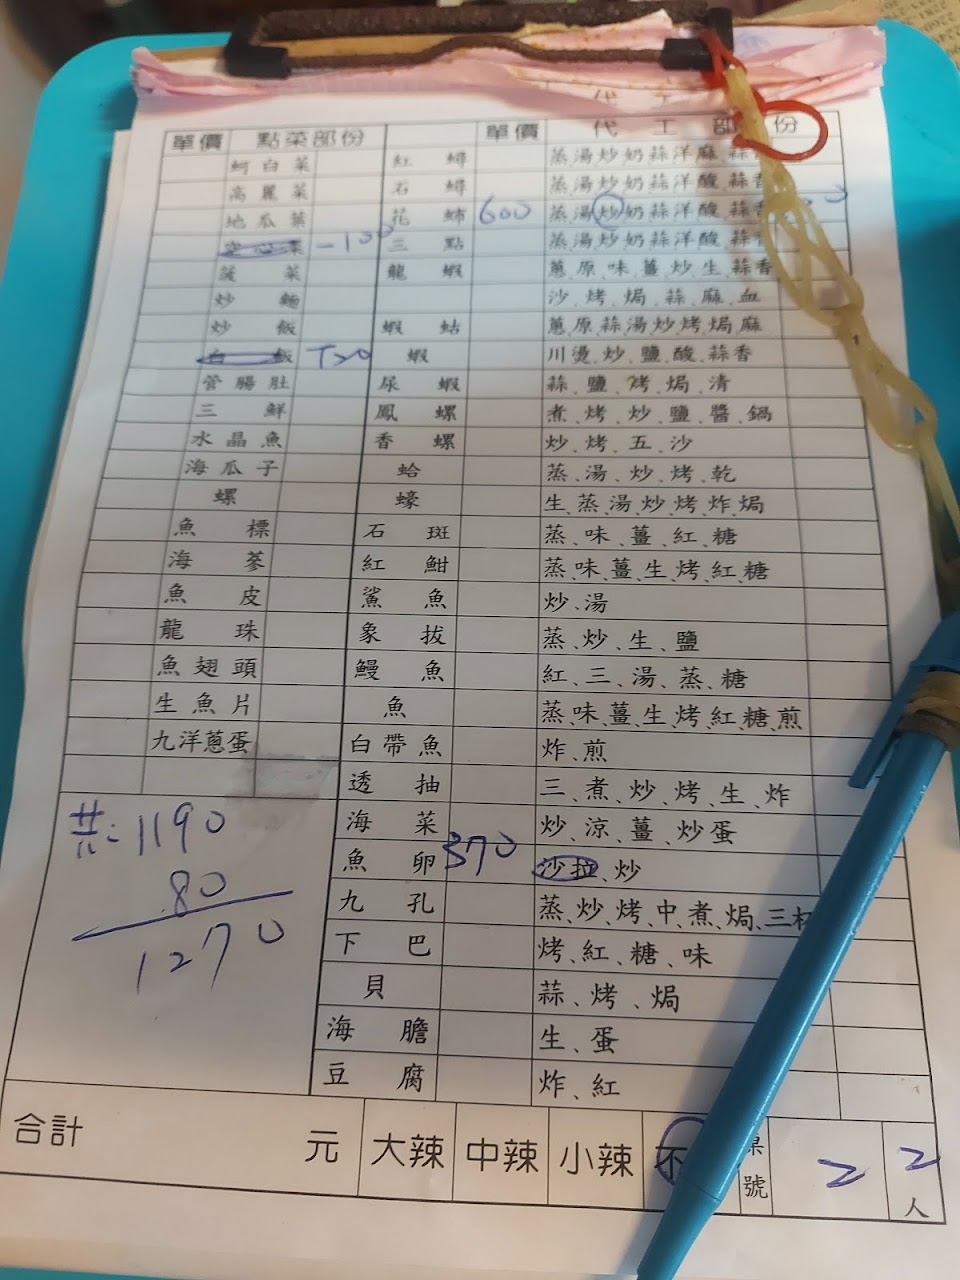 單價 點菜部份 單價 代工部份
蚵白菜 紅蟳 蒸湯炒奶蒜洋麻
高麗菜 石蟳 蒸湯炒奶蒜洋酸蒜香
地瓜葉 花 600 蒸湯炒奶蒜洋酸蒜香
空心菜 -100 三點 蒸湯炒奶蒜洋酸蒜香
菠菜 龍蝦 蔥、原、味、薑、炒、生、蒜香
炒麵 沙、烤、焗、蒜、麻、血
炒飯 蝦蛄 蔥、原、蒜、湯、炒、烤、焗、麻
白飯 T20 蝦 川燙、炒、鹽、酸、蒜香
管腸肚 尿蝦 蒜、鹽、烤、焗、清
三鮮 鳳螺 煮、烤、炒、鹽、醬、鍋
水晶魚 香螺 炒、烤、五、沙
海瓜子 蛤 蒸、湯、炒、烤、乾
螺 蠔 生、蒸、湯、炒、烤、炸、焗
魚標 石斑 蒸、味、薑、紅、糖
海蔘 紅魽 蒸、味、薑、生、烤、紅、糖
魚皮 鯊魚 炒、湯
龍珠 象拔 蒸、炒、生、鹽
魚翅頭 鰻魚 紅、三、湯、蒸、糖
生魚片 魚 蒸、味、薑、生、烤、紅、糖、煎
九洋蔥蛋 白帶魚 炸、煎
透抽 三、煮、炒、烤、生、炸
海菜 炒、涼、薑、炒蛋
魚卵 370 沙拉、炒
九孔 蒸、炒、烤、中、煮、焗、三杯
下巴 烤、紅、糖、味
貝 蒜、烤、焗
海膽 生、蛋
豆腐 炸、紅
共:1190
80
1270
合計 元 大辣 中辣 小辣 不 號 2 2人